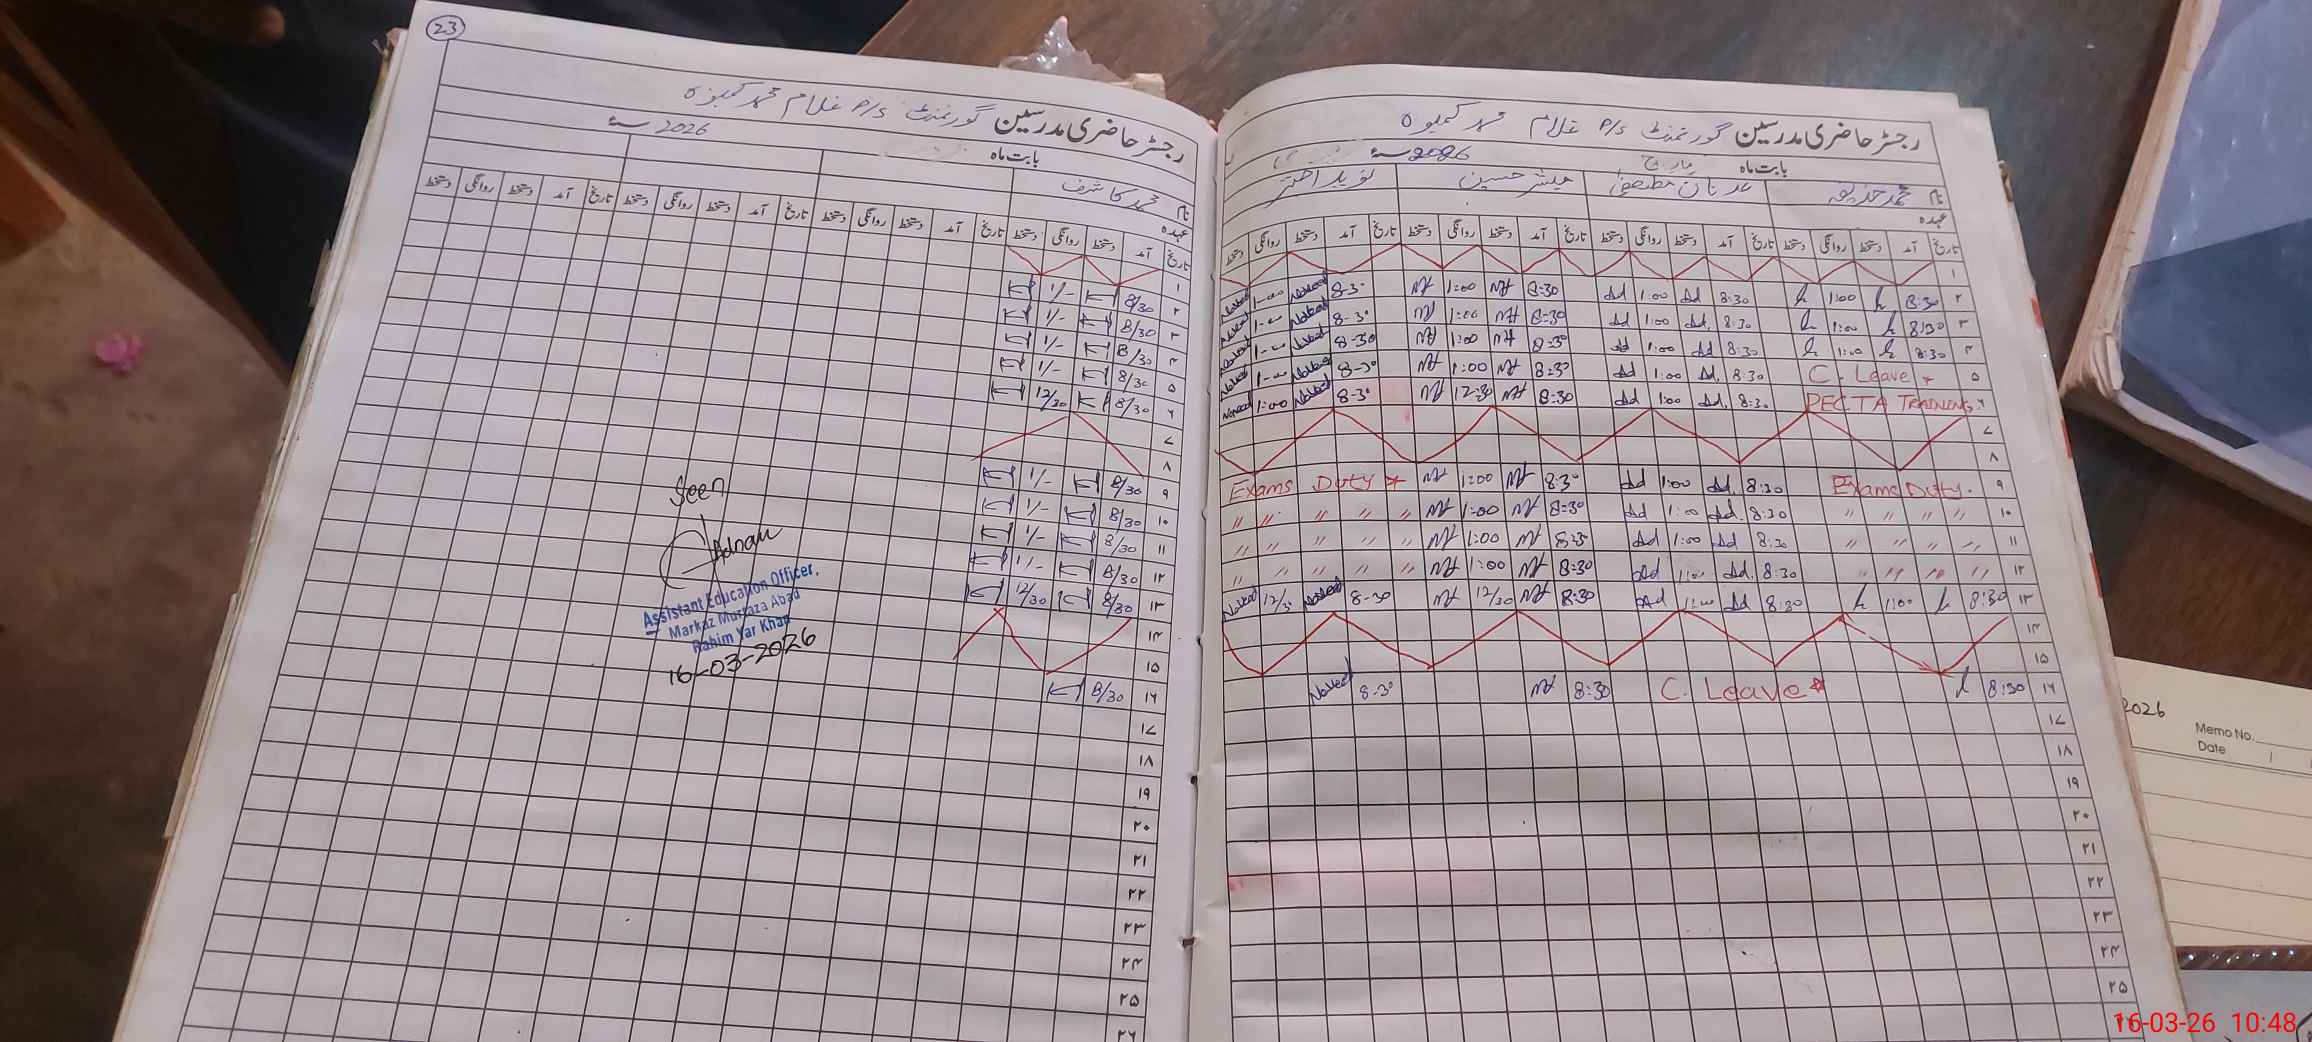 رجسٹر حاضری مدرسین گورنمنٹ P/S غلام محمد کمبوہ
بابت ماہ مارچ 2026ء
نام محمد حذیفہ عدنان مصطفیٰ مبشر حسین نوید اختر
عہدہ
تاریخ آمد دستخط روانگی دستخط تاریخ آمد دستخط روانگی دستخط تاریخ آمد دستخط روانگی دستخط تاریخ آمد دستخط روانگی دستخط
۱
۲ 8:30 1:00 8:30 Ad 1:00 Ad 8:30 1:00 8-30 Naveed 1-00 Naveed
۳ 8:30 1:00 8:30 Ad 1:00 Ad 8:30 1:00 8-30 Naveed 1-00 Naveed
۴ 8:30 1:00 8:30 Ad 1:00 Ad 8:30 1:00 8-30 Naveed 1-00 Naveed
۵ C. Leave 8:30 Ad 1:00 Ad 8:30 1:00 8-30 Naveed 1-00 Naveed
۶ PECTA TRAINING 8:30 Ad 1:00 Ad 8:30 12-30 8-30 Naveed 1:00 Naveed
۷
۸
۹ Exams Duty. 8:30 Ad 1:00 Ad 8:30 1:00 Exams Duty
۱۰ " " " " 8:30 Ad 1:00 Ad 8:30 1:00 " " " " "
۱۱ " " " " 8:30 Ad 1:00 Ad 8:30 1:00 " " " " "
۱۲ " " " " 8:30 Ad 1:00 Ad 8:30 1:00 " " " " "
۱۳ 8:30 1:00 8:30 Ad 1:00 Ad 8:30 12/30 8-30 Naveed 12/30 Naveed
۱۴
۱۵
۱۶ 8:30 C. Leave 8:30 8-30 Naveed
۱۷
۱۸
۱۹
۲۰
۲۱
۲۲
۲۳
۲۴
۲۵
23
رجسٹر حاضری مدرسین گورنمنٹ P/S غلام محمد کمبوہ
بابت ماہ 2026ء
نام محمد کاشف
عہدہ
تاریخ آمد دستخط روانگی دستخط تاریخ آمد دستخط روانگی دستخط تاریخ آمد دستخط روانگی دستخط تاریخ آمد دستخط روانگی دستخط
۱
۲ 8/30 1/-
۳ 8/30 1/-
۴ 8/30 1/-
۵ 8/30 1/-
۶ 8/30 12/30
۷
۸
۹ 8/30 1/-
۱۰ 8/30 1/-
۱۱ 8/30 1/-
۱۲ 8/30 1/-
۱۳ 8/30 12/30
۱۴
۱۵
۱۶ 8/30
۱۷
۱۸
۱۹
۲۰
۲۱
۲۲
۲۳
۲۴
۲۵
۲۶
Seen
Adnan
Assistant Education Officer,
Markaz Murtaza Abad
Rahim Yar Khan
16-03-2026
2026
Memo No.
Date
16-03-26 10:48